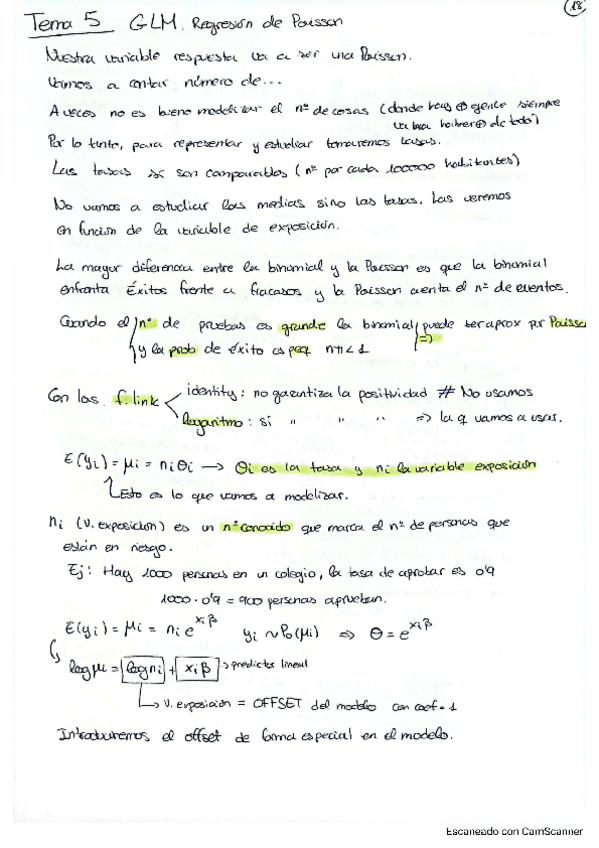 18
Tema 5 GLM. Regresión de Poisson
Nuestra variable respuesta va a ser una Poisson.
Vamos a contar número de...
A veces no es bueno modelizar el nº de cosas (donde haya ⊕ gente siempre
va haber ⊕ de todo)
Por lo tanto, para representar y estudiar tomaremos tasas.
Las tasas sí son comparables (nº por cada 100000 habitantes)
No vamos a estudiar las medias sino las tasas. Las veremos
en función de la variable de exposición.
La mayor diferencia entre la binomial y la Poisson es que la binomial
enfrenta Éxitos frente a fracasos y la Poisson cuenta el nº de eventos.
Cuando el nº de pruebas es grande la binomial puede ser aprox por Poisson
y la prob de éxito es peq nπ<1 =>
Con las f. link identity: no garantiza la positividad # No usamos
logaritmo: sí " " " => la q vamos a usar.
E(yi) = μi = niθi → θi es la tasa y ni la variable exposición
Esto es lo que vamos a modelizar.
ni (v. exposición) es un nº conocido que marca el nº de personas que
están en riesgo.
Ej: Hay 1000 personas en un colegio, la tasa de aprobar es 0'9
1000·0'9 = 900 personas aprueban.
E(yi) = μi = ni e^xiβ yi ~ Po(μi) => θ = e^xiβ
log μi = log ni + xiβ → predictor lineal
v. exposición = OFFSET del modelo con coef = 1
Introduciremos el offset de forma especial en el modelo.
Escaneado con CamScanner